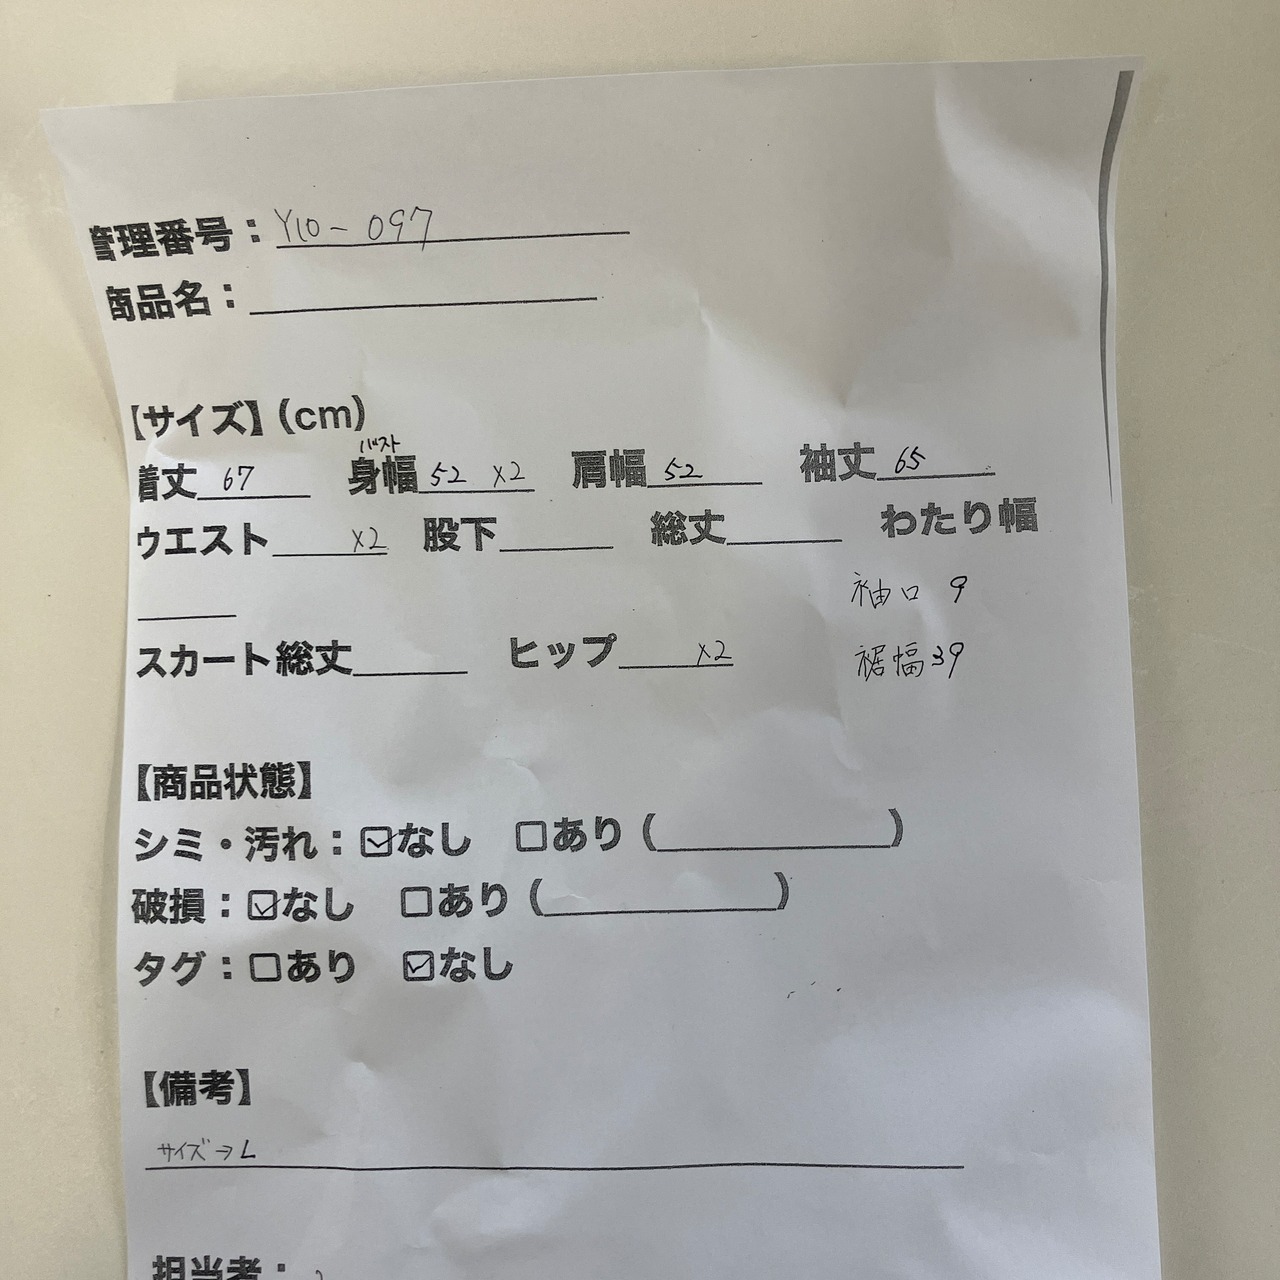 管理番号：Y10-097
商品名：
【サイズ】(cm)
バスト
着丈 67 身幅 52 ×2 肩幅 52 袖丈 65
ウエスト ×2 股下 総丈 わたり幅
袖口 9
スカート総丈 ヒップ ×2 裾幅 39
【商品状態】
シミ・汚れ：☑なし □あり（ ）
破損：☑なし □あり（ ）
タグ：□あり ☑なし
【備考】
サイズ→L
担当者：